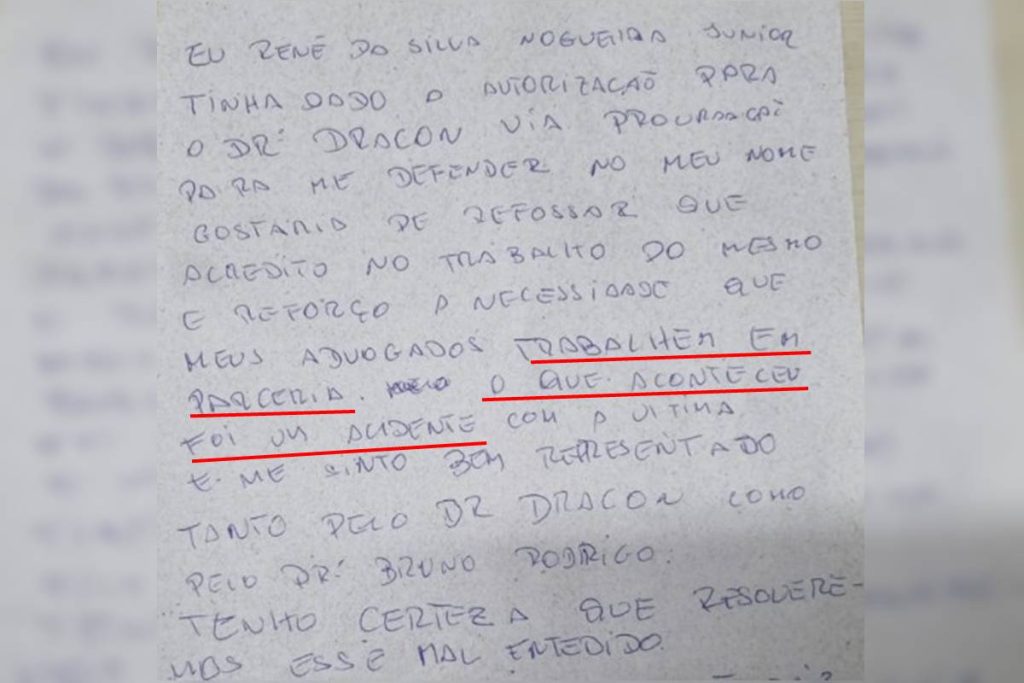 EU RENÉ DA SILVA NOGUEIRA JUNIOR
TINHA DADO A AUTORIZAÇÃO PARA
O DR. DRACON VIA PROCURAÇÃ
PARA ME DEFENDER NO MEU NOME
GOSTARIA DE REFOSSAR QUE
ACREDITO NO TRABALHO DO MESMO
E REFORÇO A NECESSIDADE QUE
MEUS ADVOGADOS TRABALHEM EM
PARCERIA. O QUE ACONTECEU
FOI UM ACIDENTE COM A VITIMA
E ME SINTO BEM REPRESENTADO
TANTO PELO DR DRACON COMO
PELO DR. BRUNO RODRIGO.
TENHO CERTEZA QUE RESOLVERE-
MOS ESSE MAL ENTEDIDO.